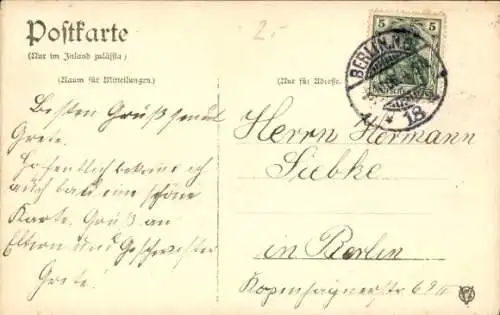 Postkarte
(Nur im Inland zulässig)
(Raum für Mitteilungen.)
Besten Gruß sendet
Grete.
Hoffentlich bekome ich
auch bald eine schöne
Karte. Gruß an
Eltern und Geschwister
Grete!
2.-
5 5
BERLIN.N.
18
(Nur für Adresse.)
Herrn Hermann
Liebke
in Berlin
Kopenhagenerstr 69 III